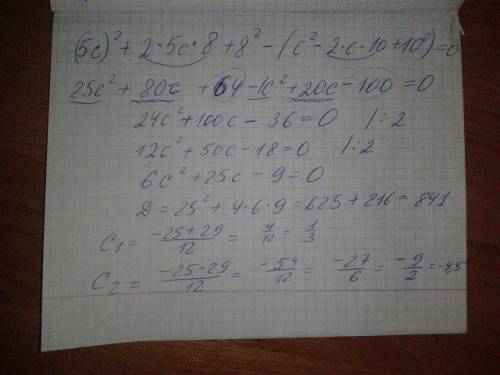 (5c)² + 2·5c·8 + 8² - (c² - 2·c·10 + 10²) = 0
25c² + 80c + 64 - 1c² + 20c - 100 = 0
24c² + 100c - 36 = 0 /:2
12c² + 50c - 18 = 0 /:2
6c² + 25c - 9 = 0
D = 25² + 4·6·9 = 625 + 216 = 841
C₁ = (-25+29)/12 = 4/12 = 1/3
C₂ = (-25-29)/12 = -54/12 = -27/6 = -9/2 = -4,5